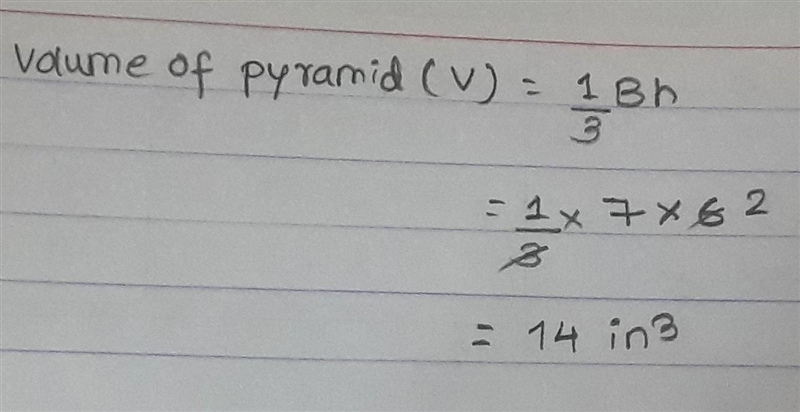 Volume of pyramid (V) = 1/3 Bh
= 1/3 × 7 × 6 2
= 14 in3